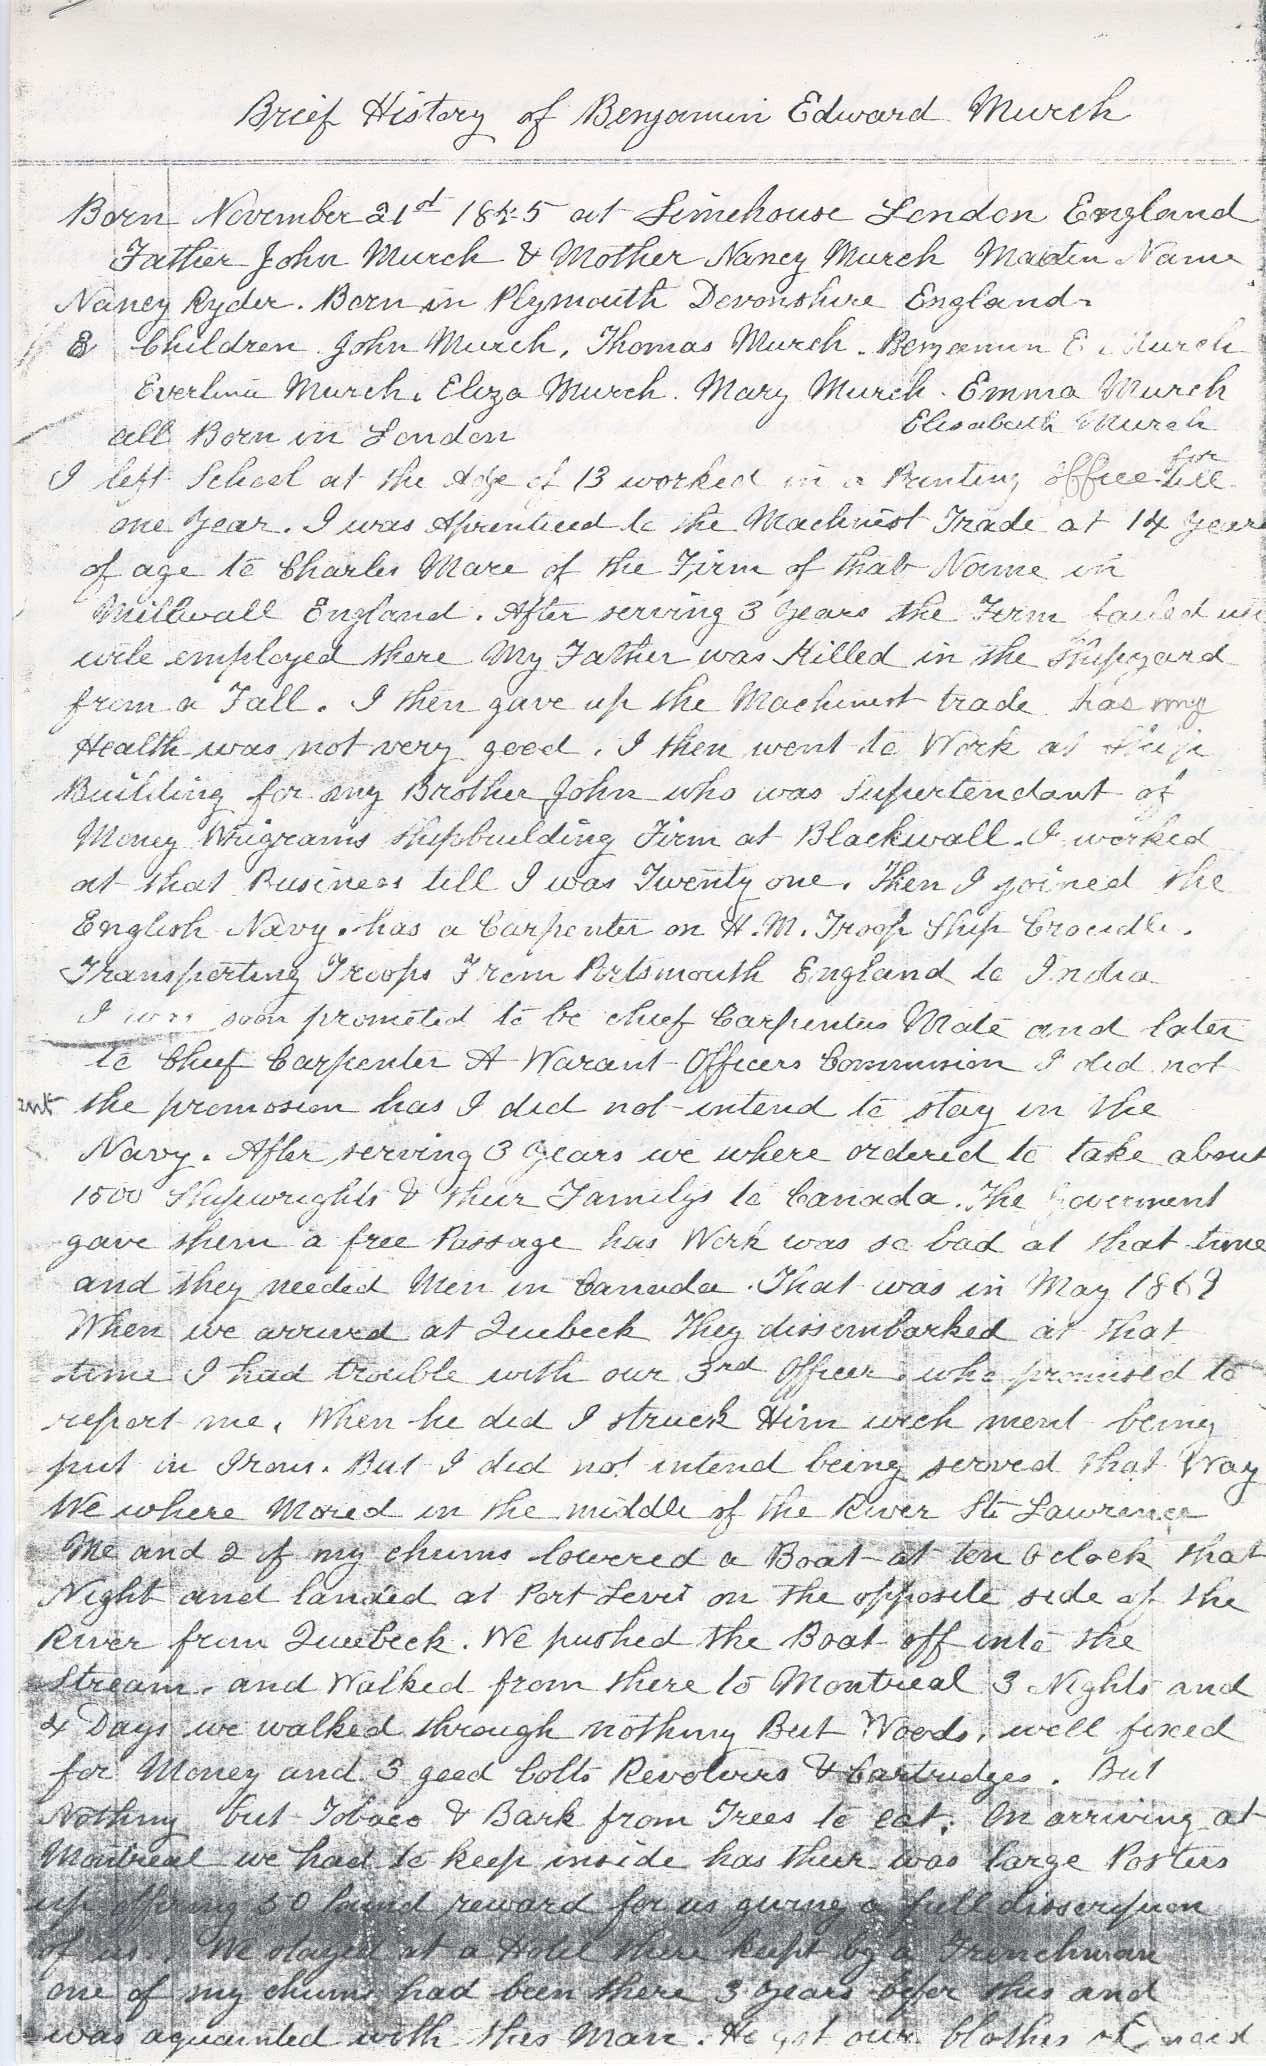 Brief History of Benjamin Edward Murch
Born November 21st 1845 at Limehouse London England
Father John Murch & Mother Nancy Murch Maiden Name
Nancy Ryder. Born in Plymouth Devonshire England.
8 Children John Murch, Thomas Murch. Benjamin E Murch
Everlina Murch, Eliza Murch. Mary Murch. Emma Murch
Elisabeth Murch
all Born in London
I left School at the Age of 13 worked in a Printing office for
one Year. I was Aprenticed to the Machinist Trade at 14 Years
of age to Charles Mare of the Firm of that Name in
Millwall England. After serving 3 Years the Firm failed
wile employed there My Father was Killed in the Shipyard
from a Fall. I then gave up the Machinist trade has my
Health was not very good. I then went to Work at Ship
Building for my Brother John who was Supertendant of
Money Wrigrams Shipbuilding Firm at Blackwall. I worked
at that Business till I was Twenty one. Then I joined the
English Navy. has a Carpenter on H.M. Troop Ship Crocidle.
Transporting Troops From Portsmouth England to India
I was soon promoted to be chief Carpenters Mate and later
to Chief Carpenter A Warant Officers Commision I did not
the promosion has I did not intend to stay in the
Navy. After serving 3 Years we where ordered to take about
1500 Shipwrights & their Familys to Canada. The Goverment
gave them a free Passage has Work was so bad at that time
and they needed Men in Canada. That was in May 1869
When we arrived at Quebeck They dissembarked at that
time I had trouble with our 3rd Officer. who promised to
report me. When he did I struck Him wich ment being
put in Irons. But I did not intend being served that Way
We where Mored in the middle of the River St Lawrence
Me and 2 of my chums lowered a Boat at ten Oclock that
Night and landed at Port Levis on the opposite side of the
River from Quebeck. We pushed the Boat off into the
Stream. and Walked from there to Montreal 3 Nights and
4 Days we walked through nothing But Woods. well fixed
for Money and 3 good Colts Revolvers & Cartrudges. But
Nothing but Tobaco & Bark from Trees to eat. On arriving at
Montreal we had to keep inside has their was large Posters
up offering 50 Pound reward for us giving a full disscripion
of us. We stayed at a Hotel there kept by a Frenchman
one of my chums had been there 3 Years befor this and
was aquainted with this Man. He got our Clothes